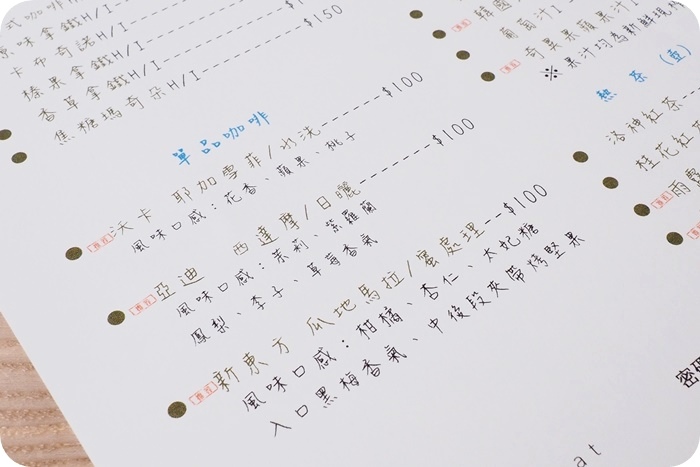 拿鐵H/I
$150
卡布奇諾H/I
榛果拿鐵H/I
香草拿鐵H/I
焦糖瑪奇朵H/I
單品咖啡
推薦 沃卡 耶加雪菲/水洗------$100
風味口感：花香、蘋果、桃子
推薦 亞迪 西達摩/日曬------$100
風味口感：茉莉、紫羅蘭
鳳梨、李子、草莓香氣
推薦 新東方 瓜地馬拉/蜜處理--$100
風味口感：柑橘、杏仁、太妃糖
入口黑梅香氣、中後段夾帶烤堅果
奇異果蘋果汁
※果汁均為新鮮現
熱茶(壺)
洛神紅茶
桂花紅茶
密碼
at